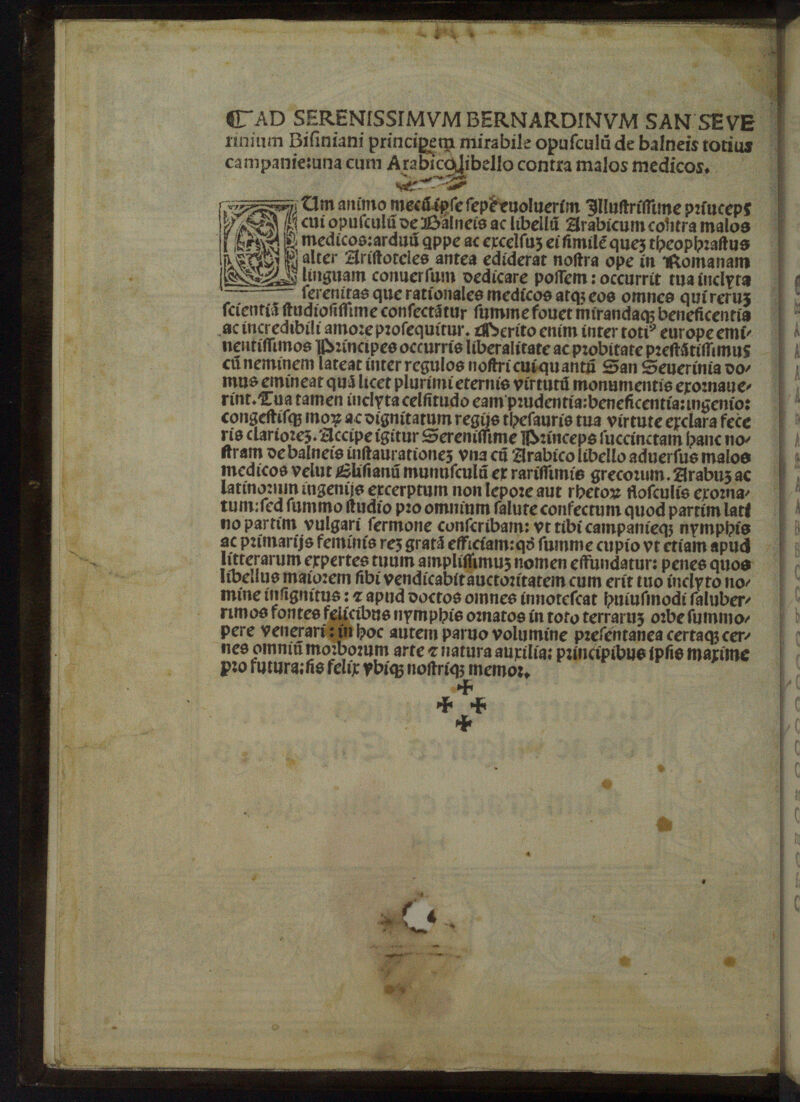 ¶ AD SERENISSIMVM BERNARDINVM SAN SEVE
rinium Bisiniani principem mirabile opusculū de balneis totius
campanie:una cum Arabico libello contra malos medicos.
CUm animo mecū ipse sepe euoluerim Illustrissime princeps
cui opusculū de Balneis ac libellū Arabicum contra malos
medicos:arduū qppe ac excelsuʒ ei simile queʒ theophrastus
alter Aristoteles antea ediderat nostra ope in Romanam
linguam conuersum dedicare possem: occurrit tua inclyta
serenitas que rationales medicos atqꝫ eos omnes qui reruʒ
scientiā studiosissime confectātur summe fouet mirandaqꝫ beneficentia
ac incredibili amore prosequitur. Merito enim inter totiꝰ europe emi⸗
nentissimos Principes occurris liberalitate ac probitate prestātissimus
cū neminem lateat inter regulos nostri cui quantū San Seuerinia do⸗
mus emineat quā licet plurimi eternis virtutū monumentis exornaue⸗
rint. Tua tamen inclyta celsitudo eam prudentia:beneficentia:ingenio:
congestisqꝫ moꝝ ac dignitatum regijs thesauris tua virtute exclara fece
ris clarioreʒ. Accipe igitur Serenissime Princeps succinctam hanc no⸗
stram de balneis instaurationeʒ vna cū Arabico libello aduersus malos
medicos velut Elisianū munusculū ex rarissimis grecorum. Arabuʒ ac
latinorum ingenijs excerptum non lepore aut rhetoꝝ flosculis exorna⸗
tum:sed summo studio pro omnium salute confectum quod partim lati
no partim vulgari sermone conscribam: vt tibi campanieqꝫ nymphis
ac primarijs feminis reʒ gratā efficiam:qđ summe cupio vt etiam apud
litterarum expertes tuum amplissimuʒ nomen effundatur: penes quos
libellus maiorem sibi vendicabit auctoritatem cum erit tuo inclyto no⸗
mine insignitus: ⁊ apud doctos omnes innotescat huiusmodi saluber⸗
rimos fontes felicibus nymphis ornatos in toto terraruʒ orbe summo⸗
pere venerari: in hoc autem paruo volumine presentanea certaqꝫ cer⸗
nes omniū morborum arte ⁊ natura auxilia: principibus ipsis maxime
pro futura:sis felix vbiqꝫ nostriqꝫ memor.